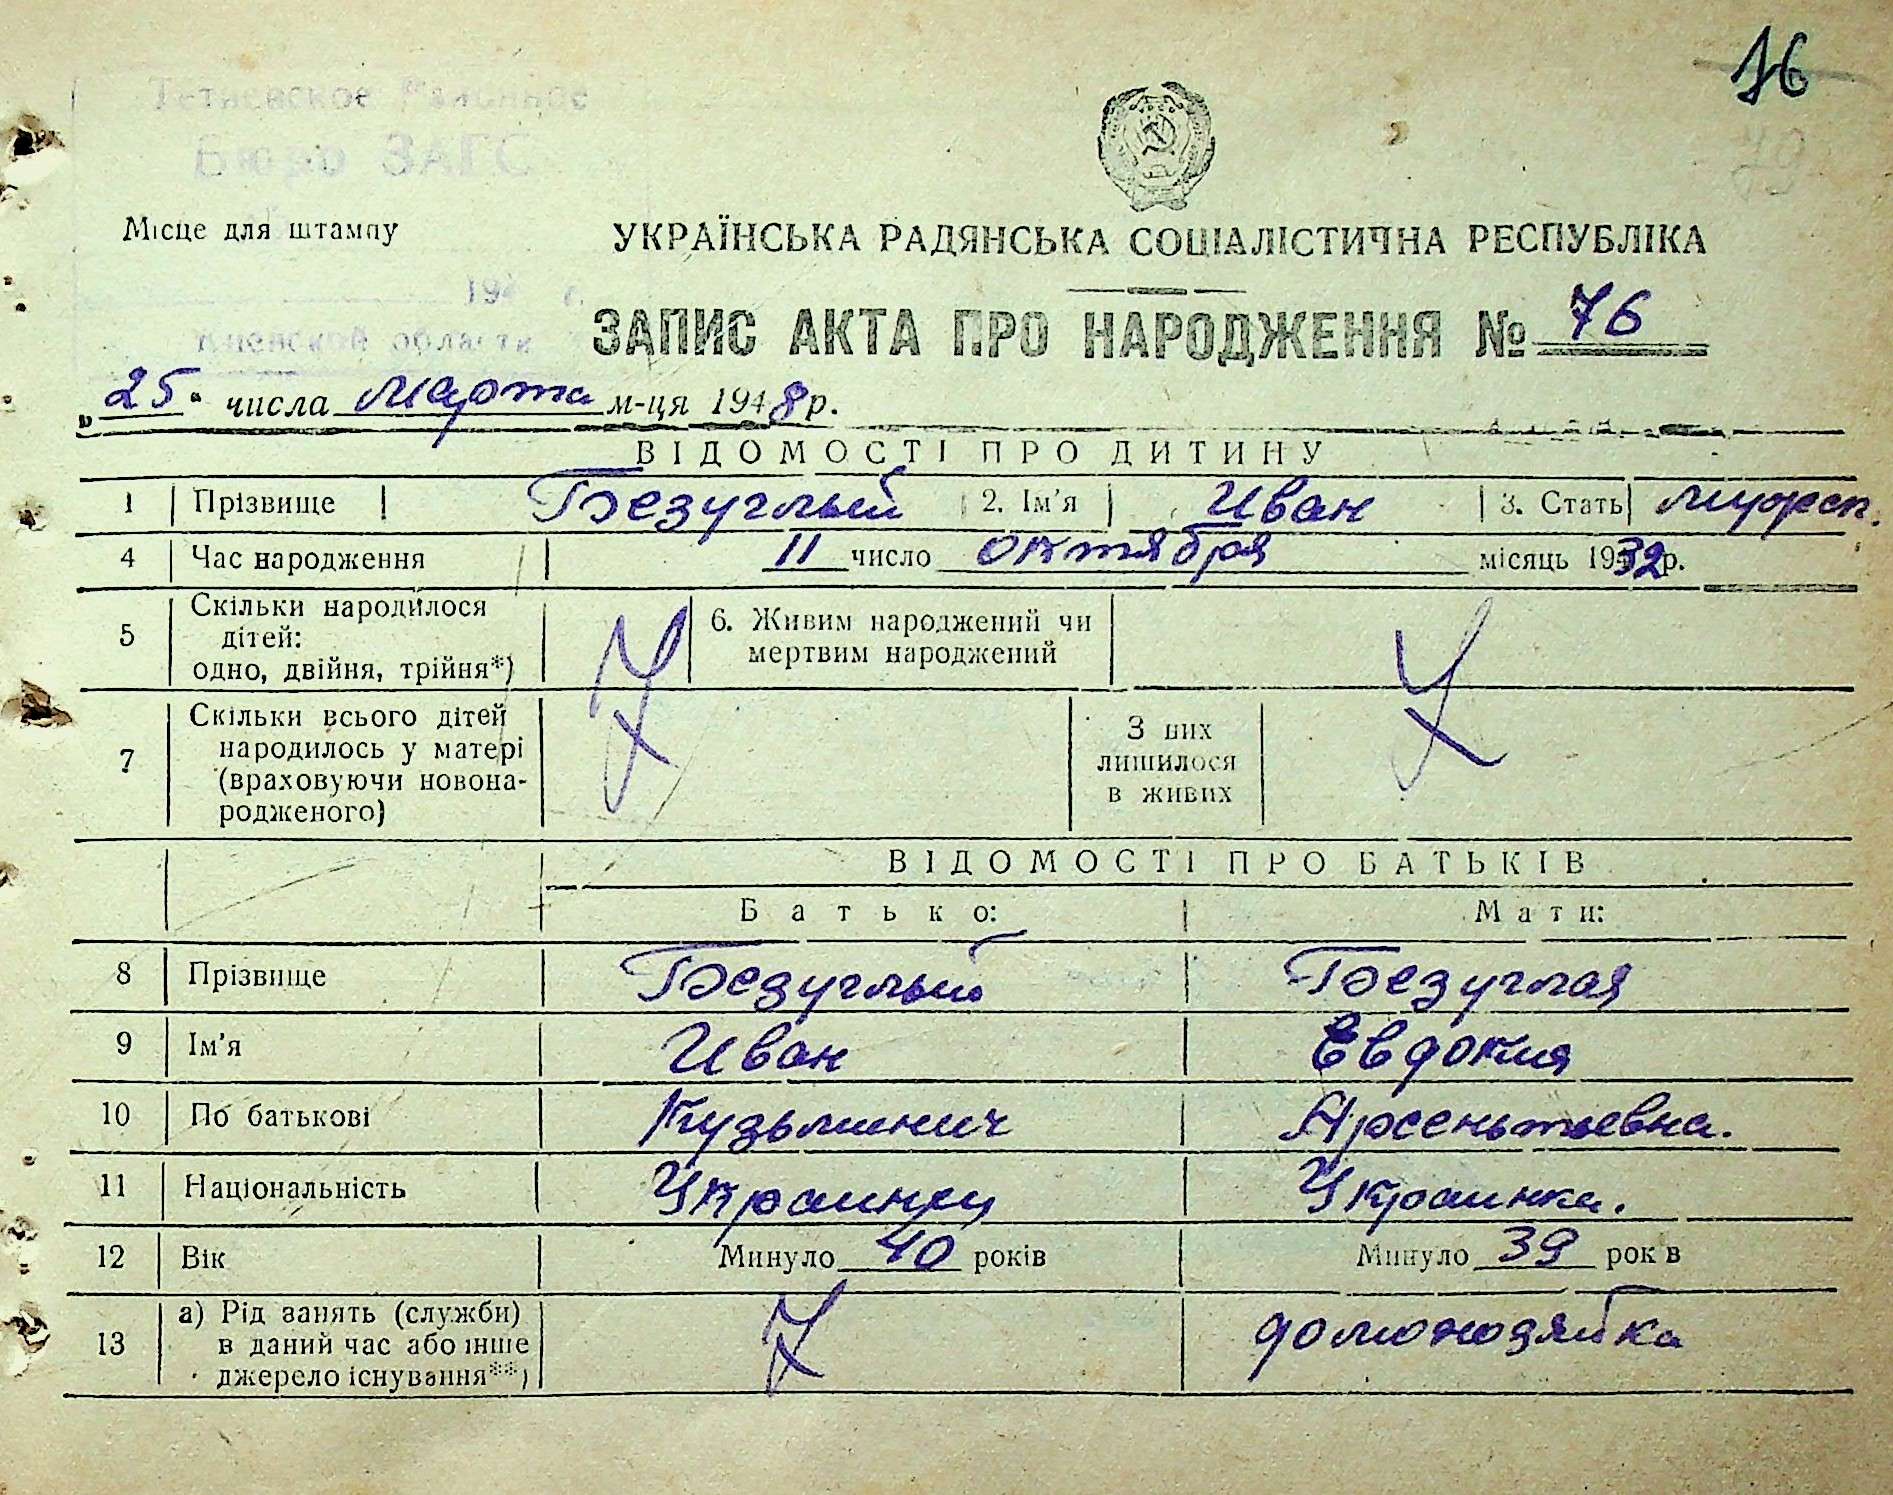 16
79
Тетиевское Районное
Бюро ЗАГС
Місце для штампу
УКРАЇНСЬКА РАДЯНСЬКА СОЦІАЛІСТИЧНА РЕСПУБЛІКА
194 г.
Киевской области
ЗАПИС АКТА ПРО НАРОДЖЕННЯ № 76
„25" числа марта м-ця 1948 р.
ВІДОМОСТІ ПРО ДИТИНУ
1 Прізвище Безуглый 2. Ім'я Иван 3. Стать мужск.
4 Час народження 11 число октября місяць 1932 р.
5 Скільки народилося дітей: одно, двійня, трійня*) 6. Живим народжений чи мертвим народжений
7 Скільки всього дітей народилось у матері (враховуючи новонародженого) З них лишилося в живих
ВІДОМОСТІ ПРО БАТЬКІВ
Батько: Мати:
8 Прізвище Безуглый Безуглая
9 Ім'я Иван Евдокия
10 По батькові Кузьминич Арсентьевна.
11 Національність Украинец Украинка.
12 Вік Минуло 40 років Минуло 39 років
13 а) Рід занять (служби) в даний час або інше джерело існування**) домохозяйка